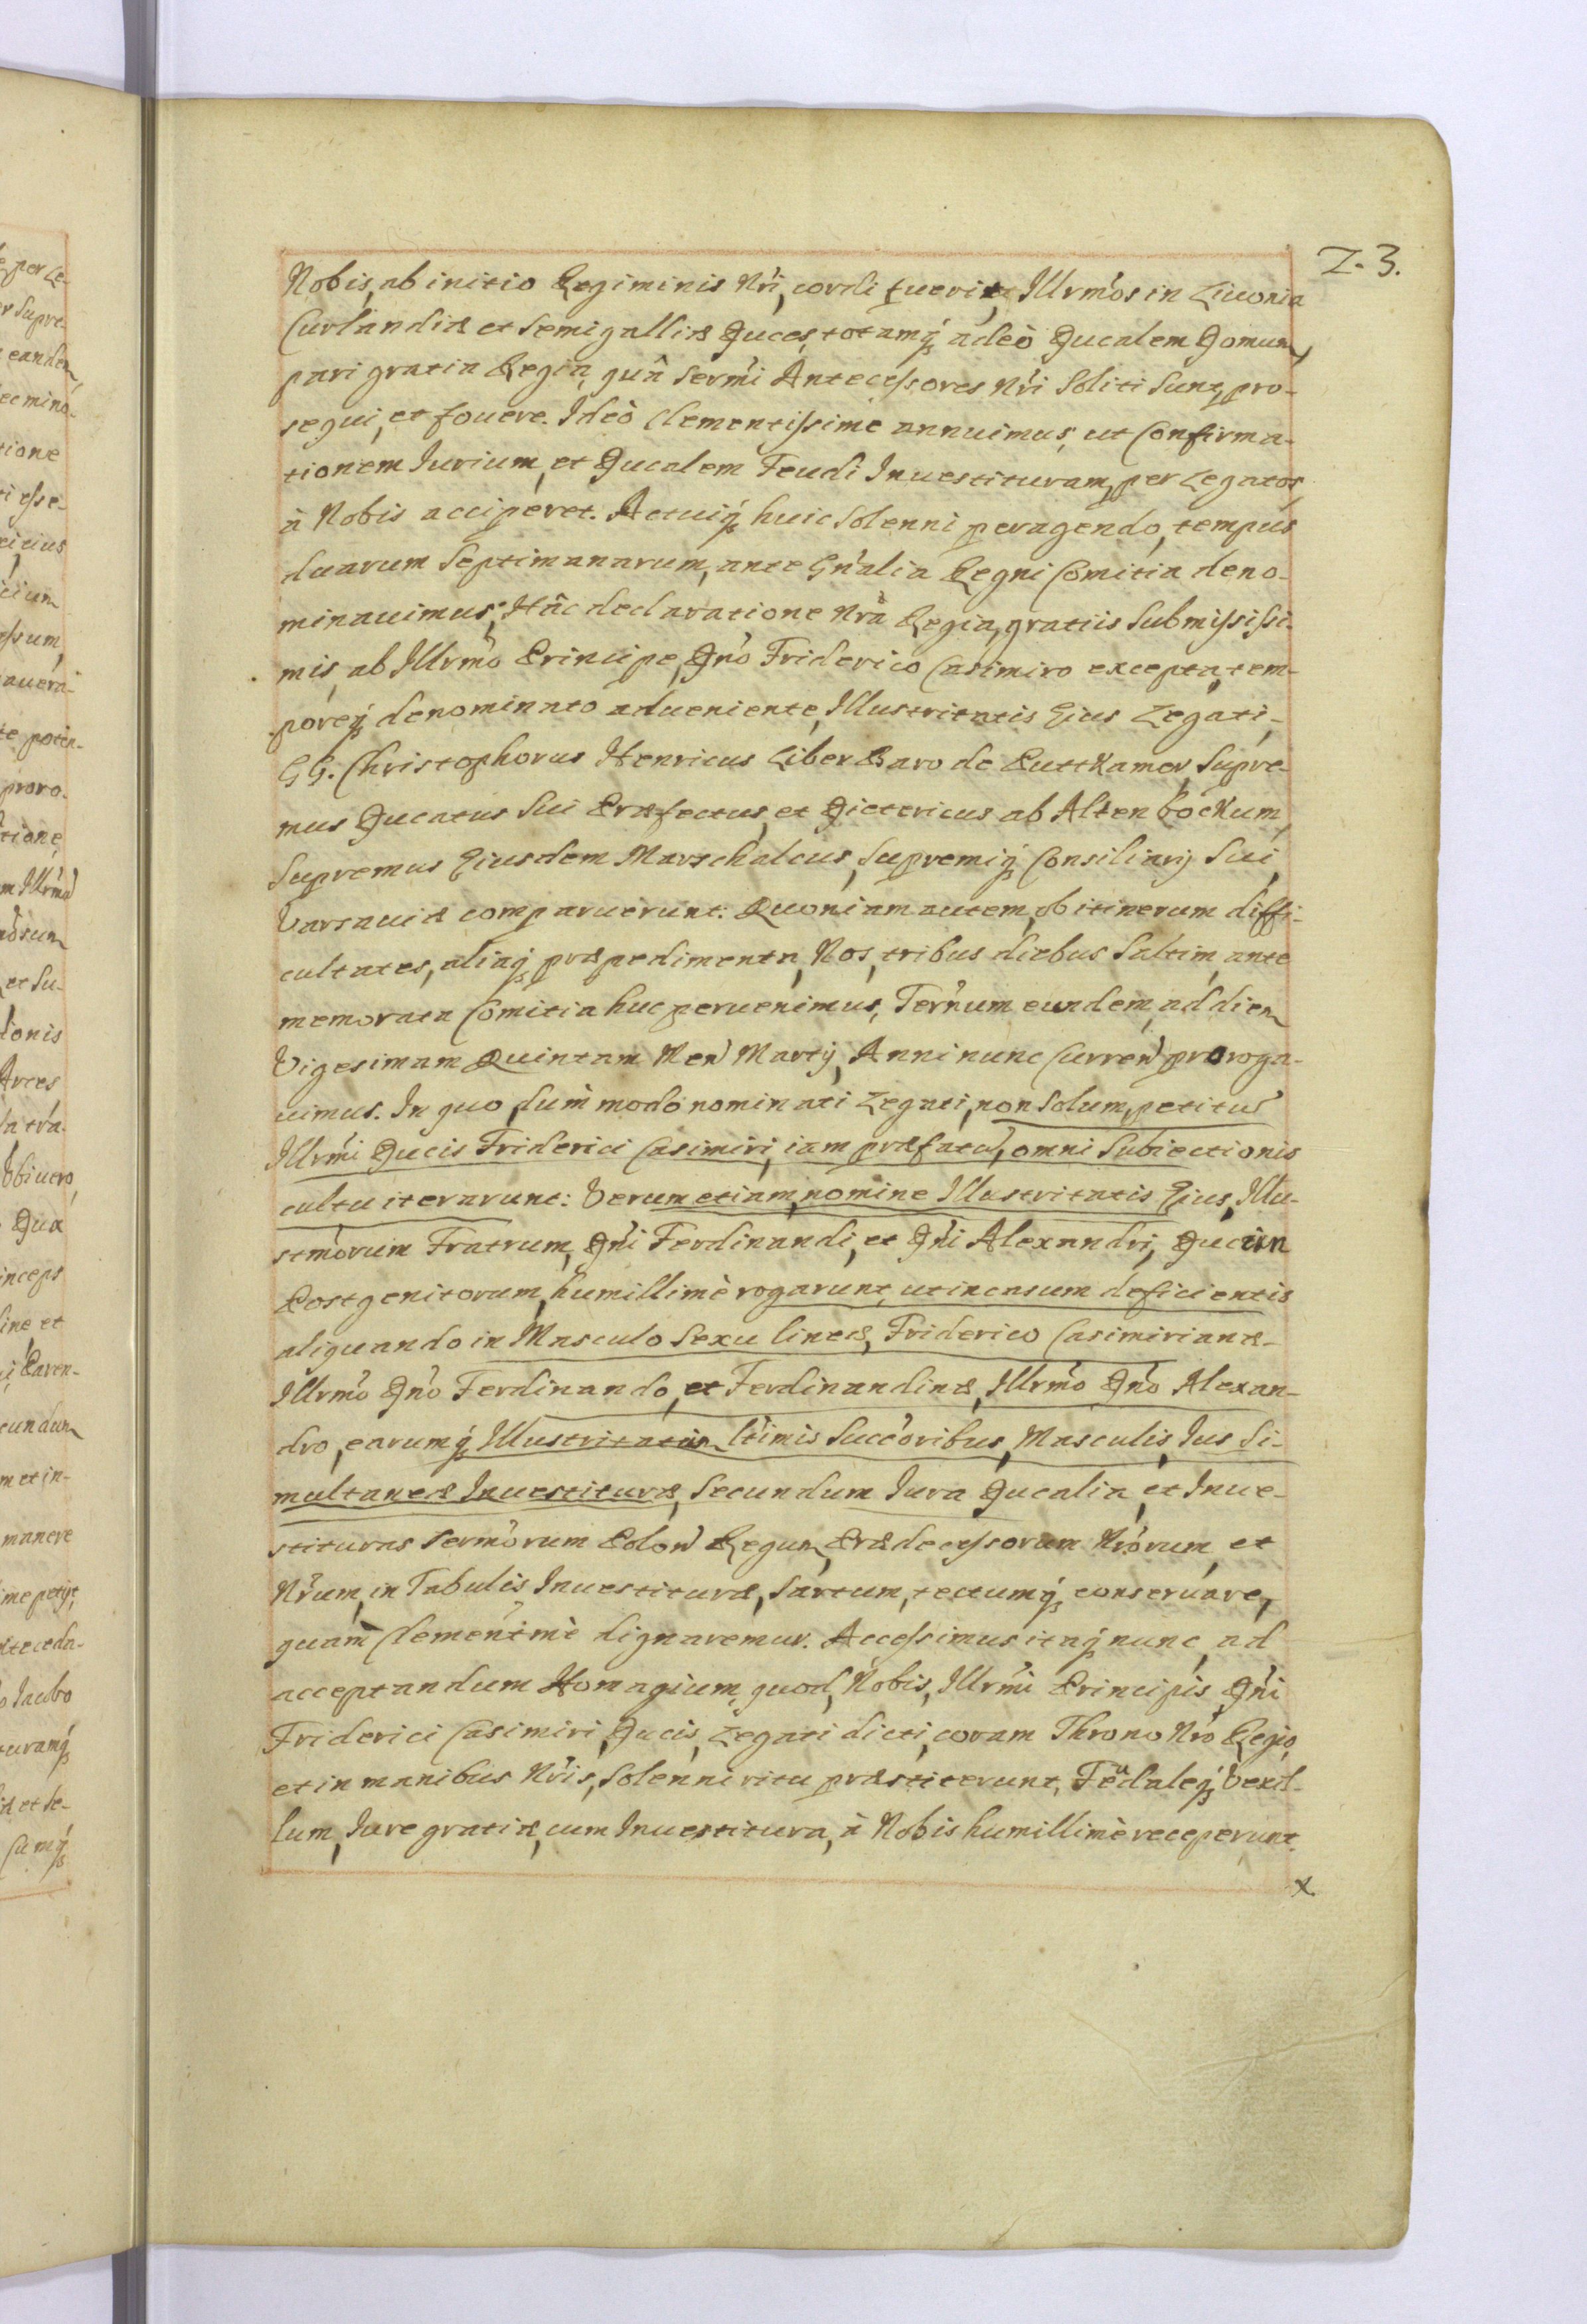 Z. 3.
Nobis, ab initio Regiminis Nri, cordi fuerit, Illrmos in Livonia
Curlandiæ et Semigalliæ Duces, totamq adeò Ducalem Domum,
pari gratia Regia, quâ Sermi Antecessores Nri Soliti Sunt, pro-
sequi, et fouere. Ideò Clementissimè annuimus, ut Confirma-
tionem Iurium, et Ducalem Feudi Inuestituram, per Legatos
à Nobis acciperet. Actuiq huic Solenni peragendo, tempus
duarum Septimanarum, ante Gnalia Regni Comitia deno-
minauimus; Hâc declaratione Nrâ Regia, gratiis Submississi-
mis, ab Illrmo Principe, Dno Friderico Casimiro excepta, tem-
poreq denominato adueniente, Illustritatis Ejus Legati,
GG. Christophorus Henricus Liber Baro de Puttkamer, Supre-
mus Ducatus Sui Præfectus, et Dietericus ab Altenbockum,
Supremus Ejusdem Marschalcus, Supremiq Consiliarij Sui,
Varsauiæ comparuerunt. Quoniam autem, ob itinerum diffi-
cultates, aliaq præpedimenta, Nos, tribus diebus Saltim, ante
memorata Comitia huc peruenimus, Ternum eundem, ad diem
Vigesimam Quintam Men Martij, Anni nunc Curren proroga-
uimus. In quo, dum modò nominati Legati, non Solum, petitu
Illrmi Ducis Friderici Casimiri, iam præfatu, omni Subiectionis
cultu iterarunt: Verum etiam, nomine Illustritatis Ejus, Illu-
strmorum Fratrum, Dni Ferdinandi, et Dni Alexandri, Ducum
Postgenitorum, humillimè rogarunt, ut in casum deficientis
aliquando in Masculo Sexu lineæ, Friderico Casimirianæ-
Illrmo Dno Ferdinando, et Ferdinandinæ, Illrmo Dno Alexan-
dro, earumq Illustritatum ltimis Succoribus, Masculis, Ius Si-
multaneæ Inuestituræ, Secundum Iura Ducalia, et Inue-
stituras Sermorum Polon Regum, Prædecessorum Nrorum, et
Nrum, in Tabulis Inuestituræ, Sartum, tectumq conseruare,
quam Clementmè dignaremur. Accessimus itaq nunc, ad
acceptandum Homagium, quod, Nobis, Illrmi Principis Dni
Friderici Casimiri, Ducis, Legati dicti, coram Throno Nro Regio,
et in manibus Nris, Solenni ritu præstiterunt, Feudaleq Vexil-
lum, Iure gratiæ, cum Inuestitura, à Nobis humillimè receperunt.
x